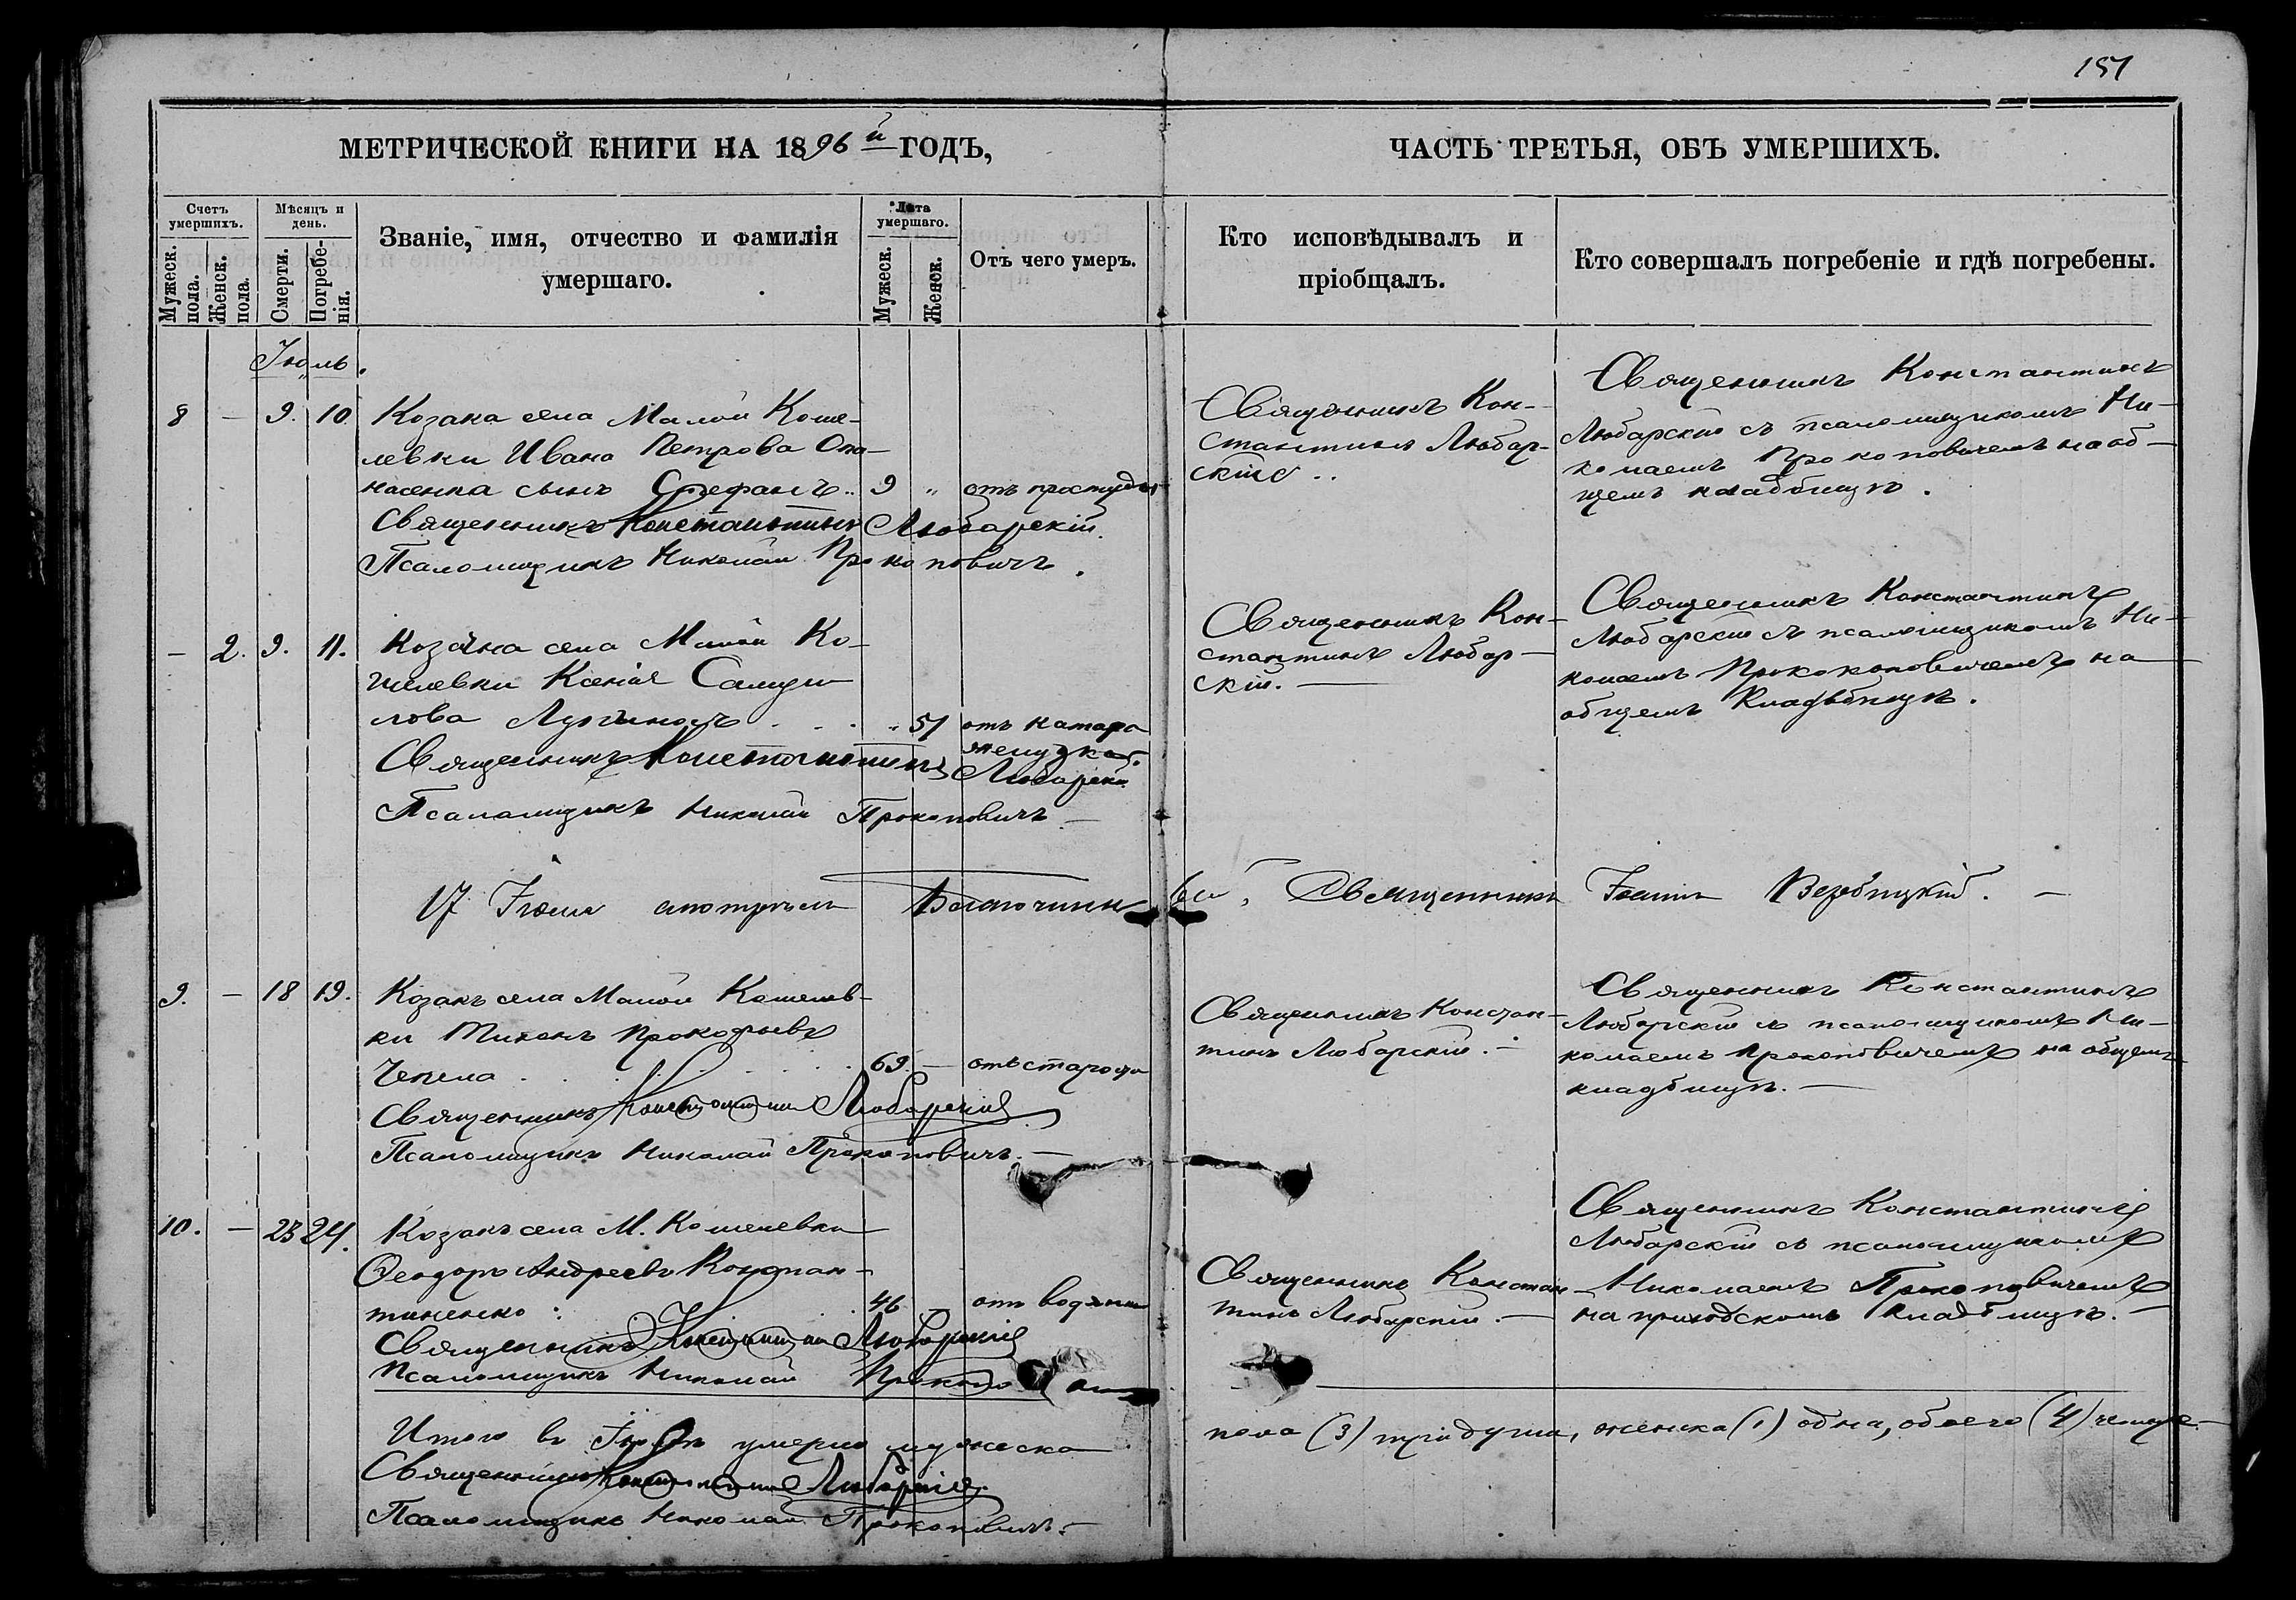 151
МЕТРИЧЕСКОЙ КНИГИ НА 1896й ГОДЪ,
ЧАСТЬ ТРЕТЬЯ, ОБЪ УМЕРШИХЪ.
Счетъ умершихъ.
Мужеск. пола.
Женск. пола.
Мѣсяцъ и день.
Смерти.
Погребенія.
Званіе, имя, отчество и фамилія
умершаго.
Лѣта умершаго.
Мужеск.
Женск.
Отъ чего умеръ.
Кто исповѣдывалъ и
пріобщалъ.
Кто совершалъ погребеніе и гдѣ погребены.
Іюль.
8 — 9. 10. Козака села Малой Коше-
левки Ивана Петрова Опа-
насенка сынъ Стефанъ .. 9 „ отъ простуды
Священникъ Константинъ Любарскій.
Псаломщикъ Николай Прокоповичъ.
Священникъ Кон-
стантинъ Любар-
скій ..
Священникъ Константинъ
Любарскій съ псаломщикомъ Ни-
колаемъ Прокоповичемъ на об-
щемъ кладбищѣ.
— 2. 9. 11. села Малой Ко-
шелевки Ксенія
лова . . . „ 51 отъ катара
желудка.
Священникъ Константинъ Любарскій
Псаломщикъ Николай Прокоповичъ —
Священникъ Кон-
стантинъ Любар-
скій. —
Священникъ Константинъ
Любарскій съ псаломщикомъ Ни-
колаемъ Прококоповичемъ на
общемъ кладбищѣ.
17 Іюля смотрѣлъ Благочинный, Священникъ Іоаннъ Вербицкій. —
9. — 18 19. Козакъ села Малой Кошелев-
ки Тихонъ Прокофьевъ
Чепела . . . . . 69. — отъ старости
Священникъ Константинъ Любарскій
Псаломщикъ Николай Прокоповичъ. —
Священникъ Констан-
тинъ Любарскій. —
Священникъ Константинъ
Любарскій съ псаломщикомъ Ни-
колаемъ Прокоповичемъ на общемъ
кладбищѣ. —
10. — 23 24. Козакъ села М. Кошелевки
Ѳеодоръ Андреевъ Констан-
тиненко : . 46 — отъ водянки
Священникъ Константинъ Любарскій
Псаломщикъ Николай
Священникъ Констан-
тинъ Любарскій. —
Священникъ Константинъ
Любарскій съ псаломщикомъ
Николаемъ Прокоповичемъ
на приходскомъ кладбищѣ. —
Итого въ Іюлѣ умерло мужеска пола (3) три души, женска (1) одна, обоего (4) четыре.
Священникъ Константинъ Любарскій.
Псаломщикъ Николай Прокоповичъ. —